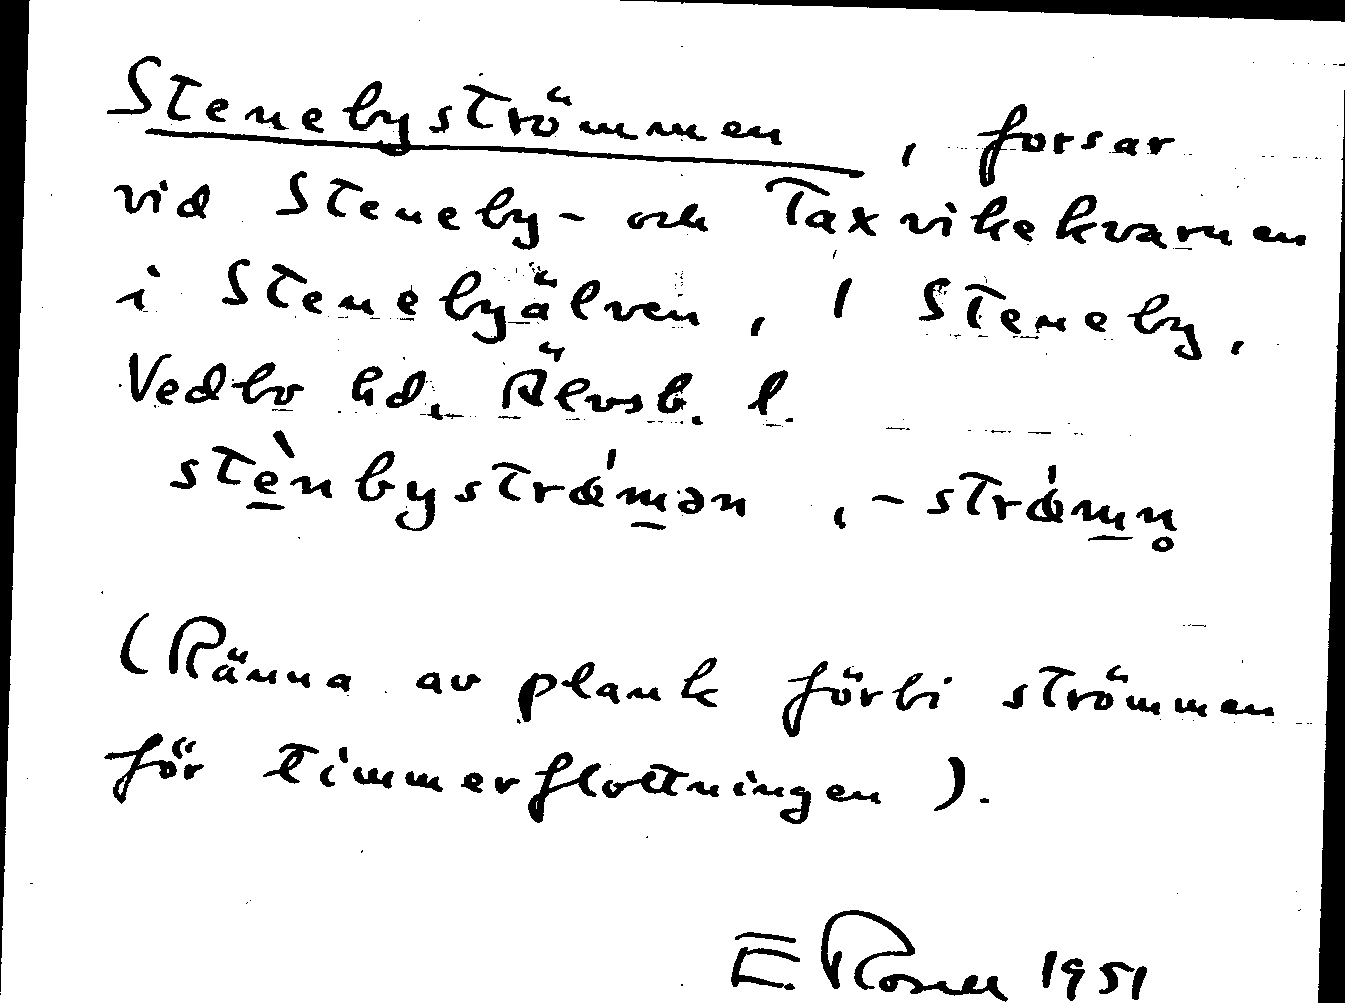 Stenebyströmmen, forsar
vid Steneby- och Taxvikekvarnen
i Stenebyälven, i Steneby,
Vedbo hd, Älvsb. l.
stè̲nbystrǿm̲ən, -strǿm̲n̥
(Ränna av plank förbi strömmen
för timmerflottningen).
E. Rosell 1951